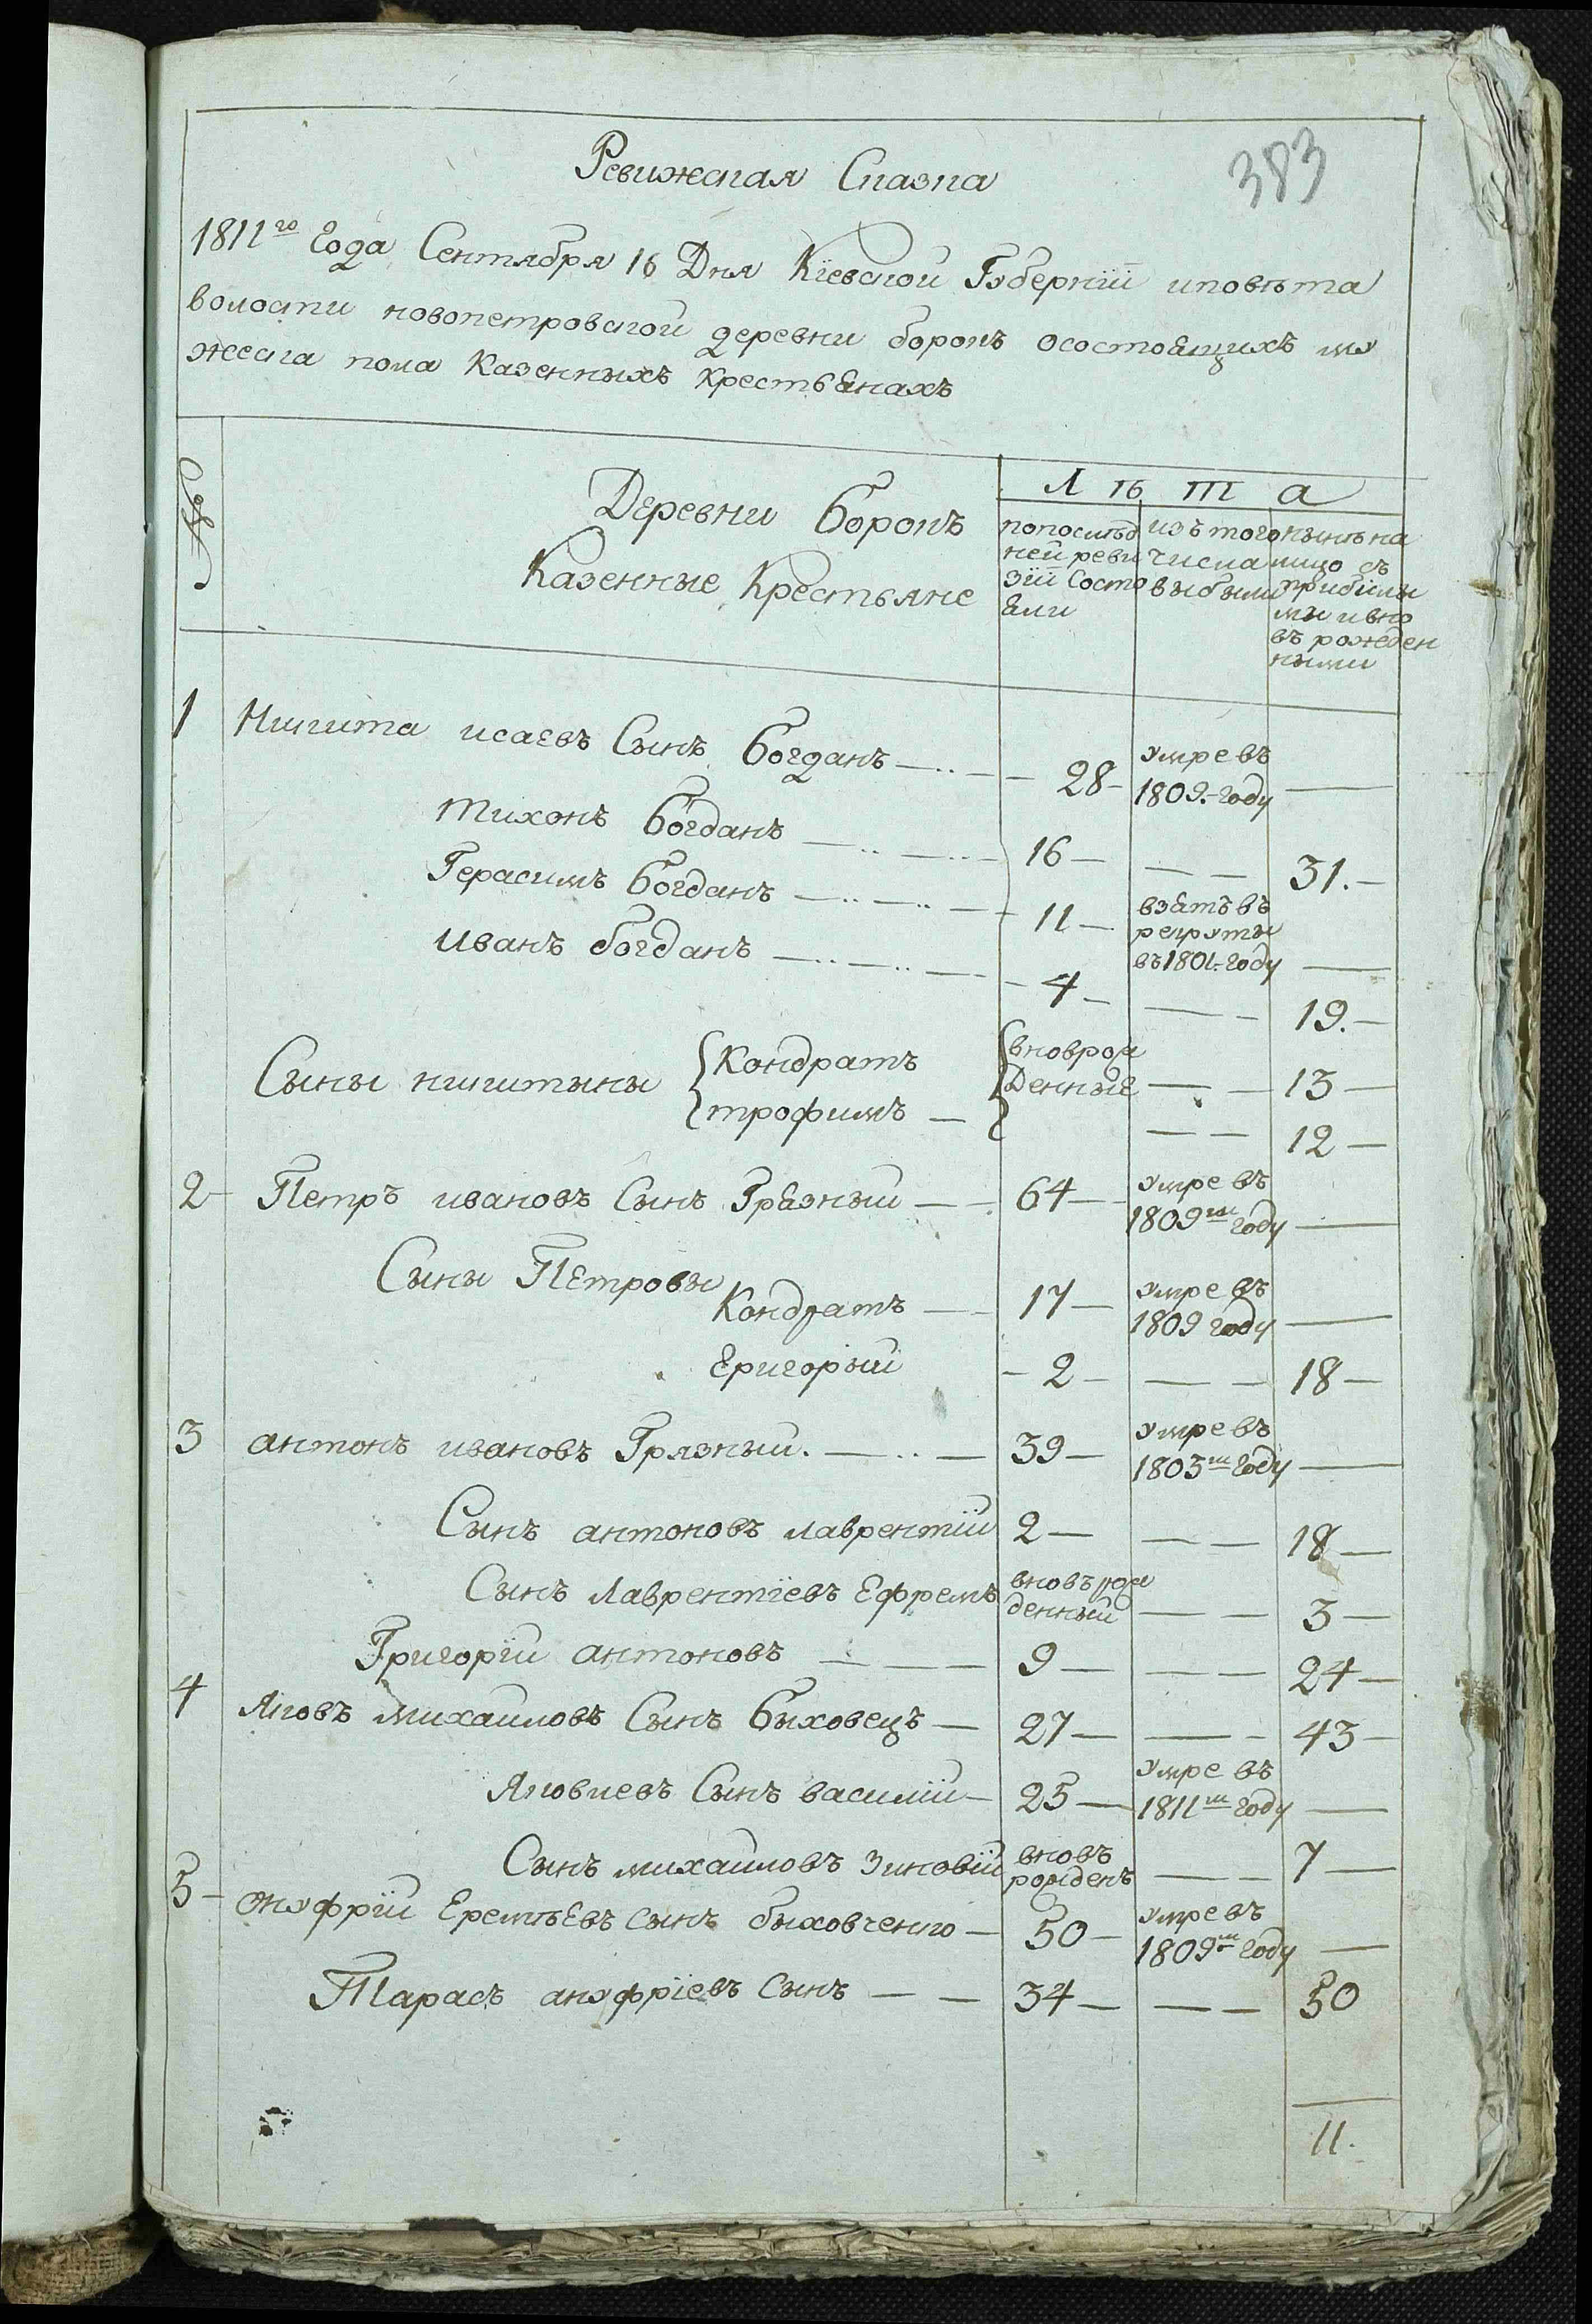 383
Ревижская Сказка
1811го Года Сентября 16 Дня Кіевской Губерніи иповѣта
волости новопетровской деревни борокъ осостоящихъ му
жеска пола Казенныхъ крестьянахъ
№
Деревни Борокъ
Казенные Крестьяне
Л ѣ т а
попослѣд
ней реви
зіи Состо
яли
изъ того
числа
выбыли
нынѣ на
лицо съ
прибылы
мы ивно
въ рожден
ными
1 Никита исаевъ Сынъ Богданъ — 28 — умре въ 1809.-году —
Тихонъ Богданъ — 16 — — — 31. —
Герасимъ Богданъ — 11 — взятъ въ рекруты въ 1801.-году —
Иванъ богданъ — 4 — — — 19. —
Сыны никитыны
Кондратъ вноврож Денные — — 13 —
трофимъ — — — 12 —
2 Петръ ивановъ Сынъ Грязный — 64 — умре въ 1809м году —
Сыны Петровы
Кондратъ — 17 — умре въ 1809 году —
Григорый — 2 — — — 18 —
3 антонъ ивановъ Грязный. — 39 — умре въ 1803м году —
Сынъ антоновъ лаврентій 2 — — — 18 —
Сынъ лаврентіевъ Ефремъ вновърож денный — — 3 —
Григорій антоновъ — 9 — — — 24 —
4 Яковъ михаиловъ Сынъ Быховецъ — 27 — — — 43 —
Яковлевъ Сынъ василій — 25 — умре въ 1811м году —
Сынъ михаиловъ зиновій вновъ рожденъ — — 7 —
5 онуфрій Еремѣевъ сынъ быховченко — 50 — умре въ 1809м году —
Тарасъ ануфріевъ Сынъ — — 34 — — — 50
11.